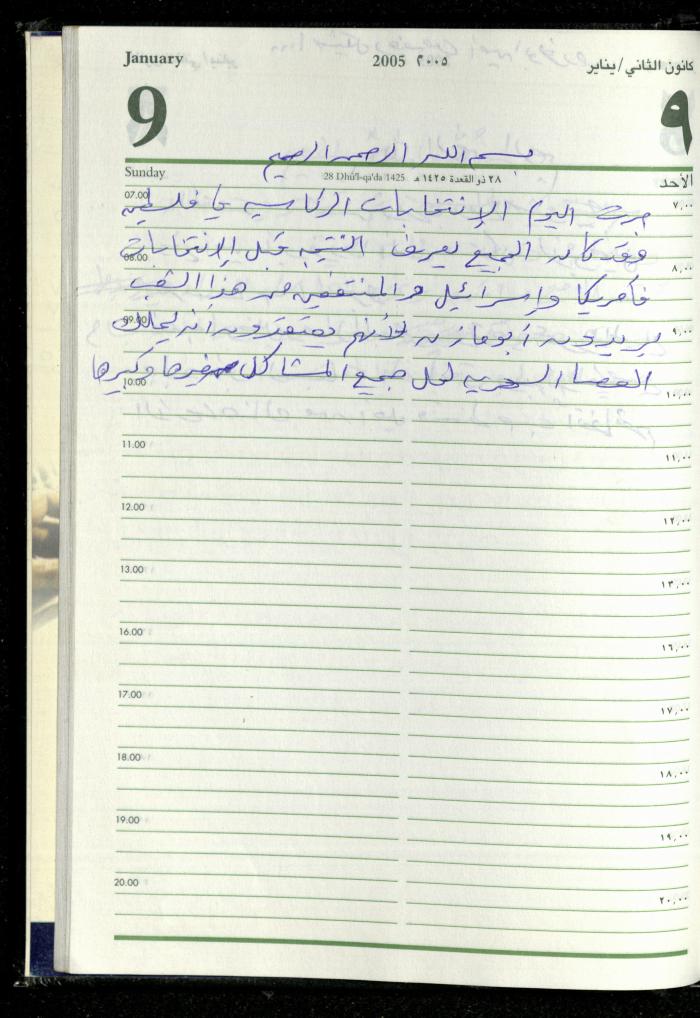 January 2005 ٢٠٠٥ كانون الثاني/يناير
9 ٩
بسم الله الرحمن الرحيم
Sunday 28 Dhú'l-qa'da 1425 ٢٨ ذو القعدة ١٤٢٥ هـ الأحد
07.00 جرت اليوم الإنتخابات الرئاسيه في فلسطين ٧,٠٠
فقد كان الجميع يعرف النتيجه قبل الإنتخابات
08.00 ٨,٠٠
فأمريكا وإسرائيل والمنتفعين من هذا الشعب
09.00 يريدون أبو مازن لأنهم يعتقدون أنه يملك ٩,٠٠
العصا السحريه لحل جميع المشاكل صغيرها وكبيرها
10.00 ١٠,٠٠
11.00 ١١,٠٠
12.00 ١٢,٠٠
13.00 ١٣,٠٠
16.00 ١٦,٠٠
17.00 ١٧,٠٠
18.00 ١٨,٠٠
19.00 ١٩,٠٠
20.00 ٢٠,٠٠